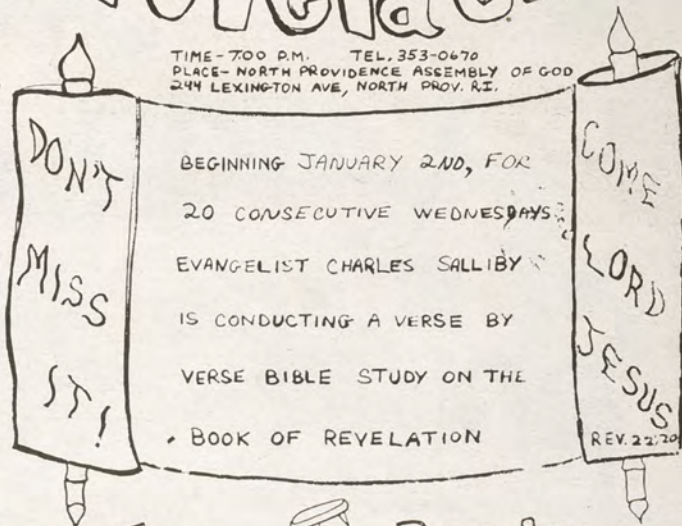 TIME-7:00 P.M. TEL. 353-0670
PLACE- NORTH PROVIDENCE ASSEMBLY OF GOD
244 LEXINGTON AVE, NORTH PROV. R.I.
DON'T
MISS
IT!
BEGINNING JANUARY 2ND, FOR
20 CONSECUTIVE WEDNESDAYS
EVANGELIST CHARLES SALLIBY
IS CONDUCTING A VERSE BY
VERSE BIBLE STUDY ON THE
BOOK OF REVELATION
COME
LORD
JESUS
REV. 22:20